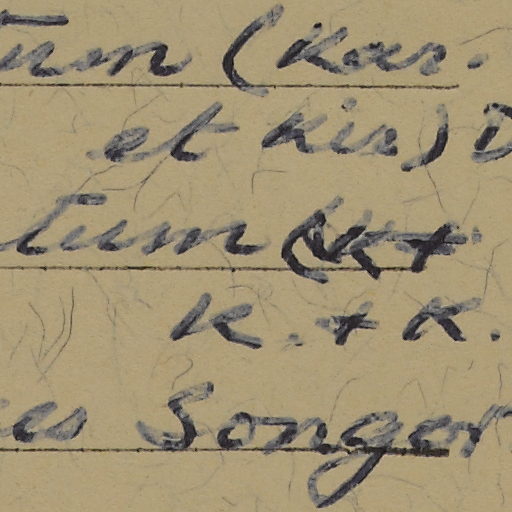 tum (Kar.
et Kir) D
tum (K+
K. + K.
Songor